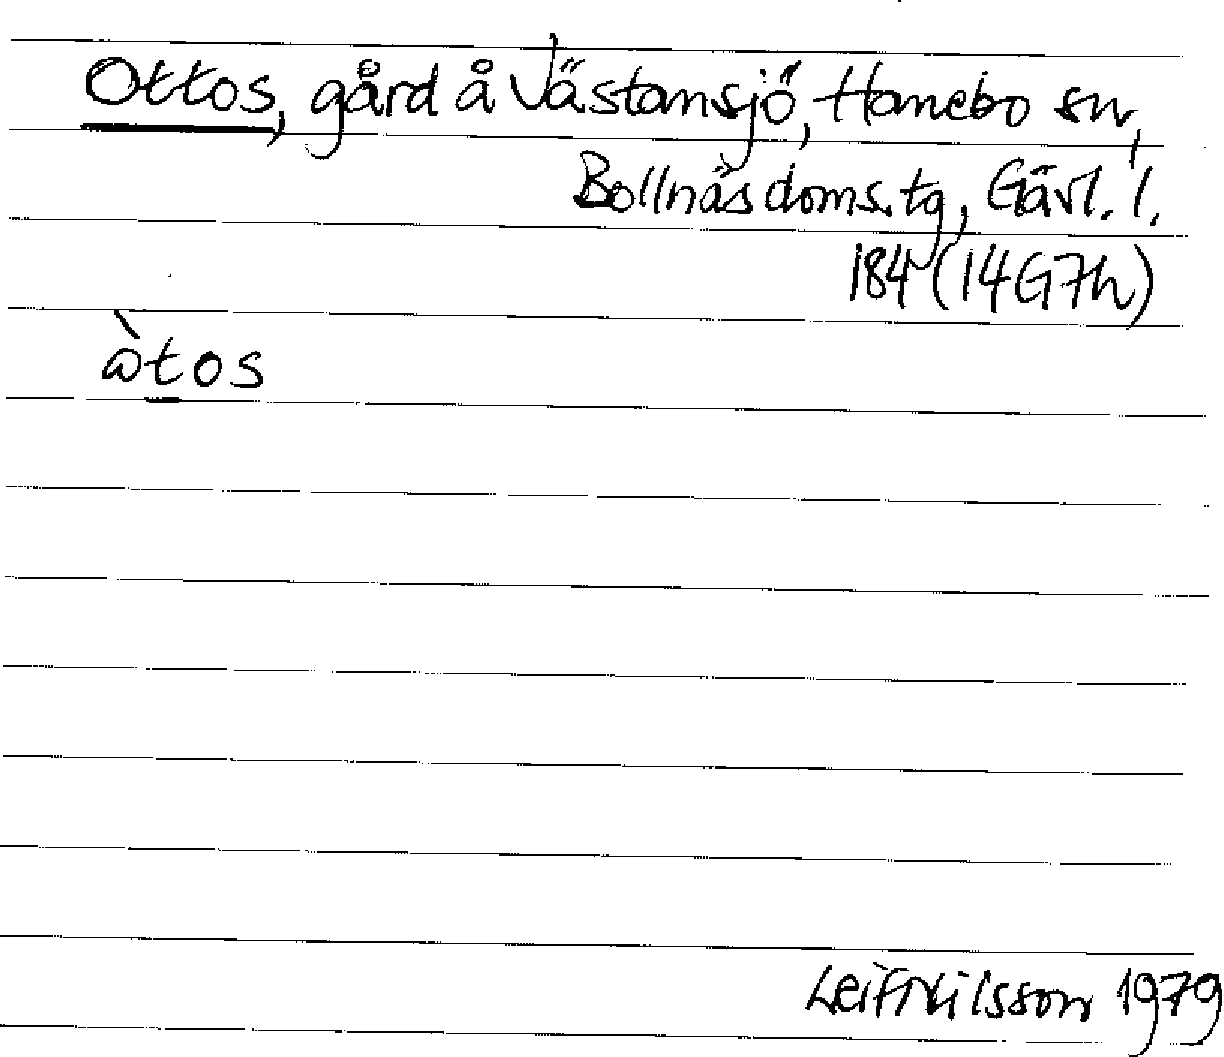 Ottos, gård å Västansjö, Hanebo sn,
Bollnäs doms.tg, Gävl. l.
184 (14G7h)
òtos
Leif Nilsson 1979